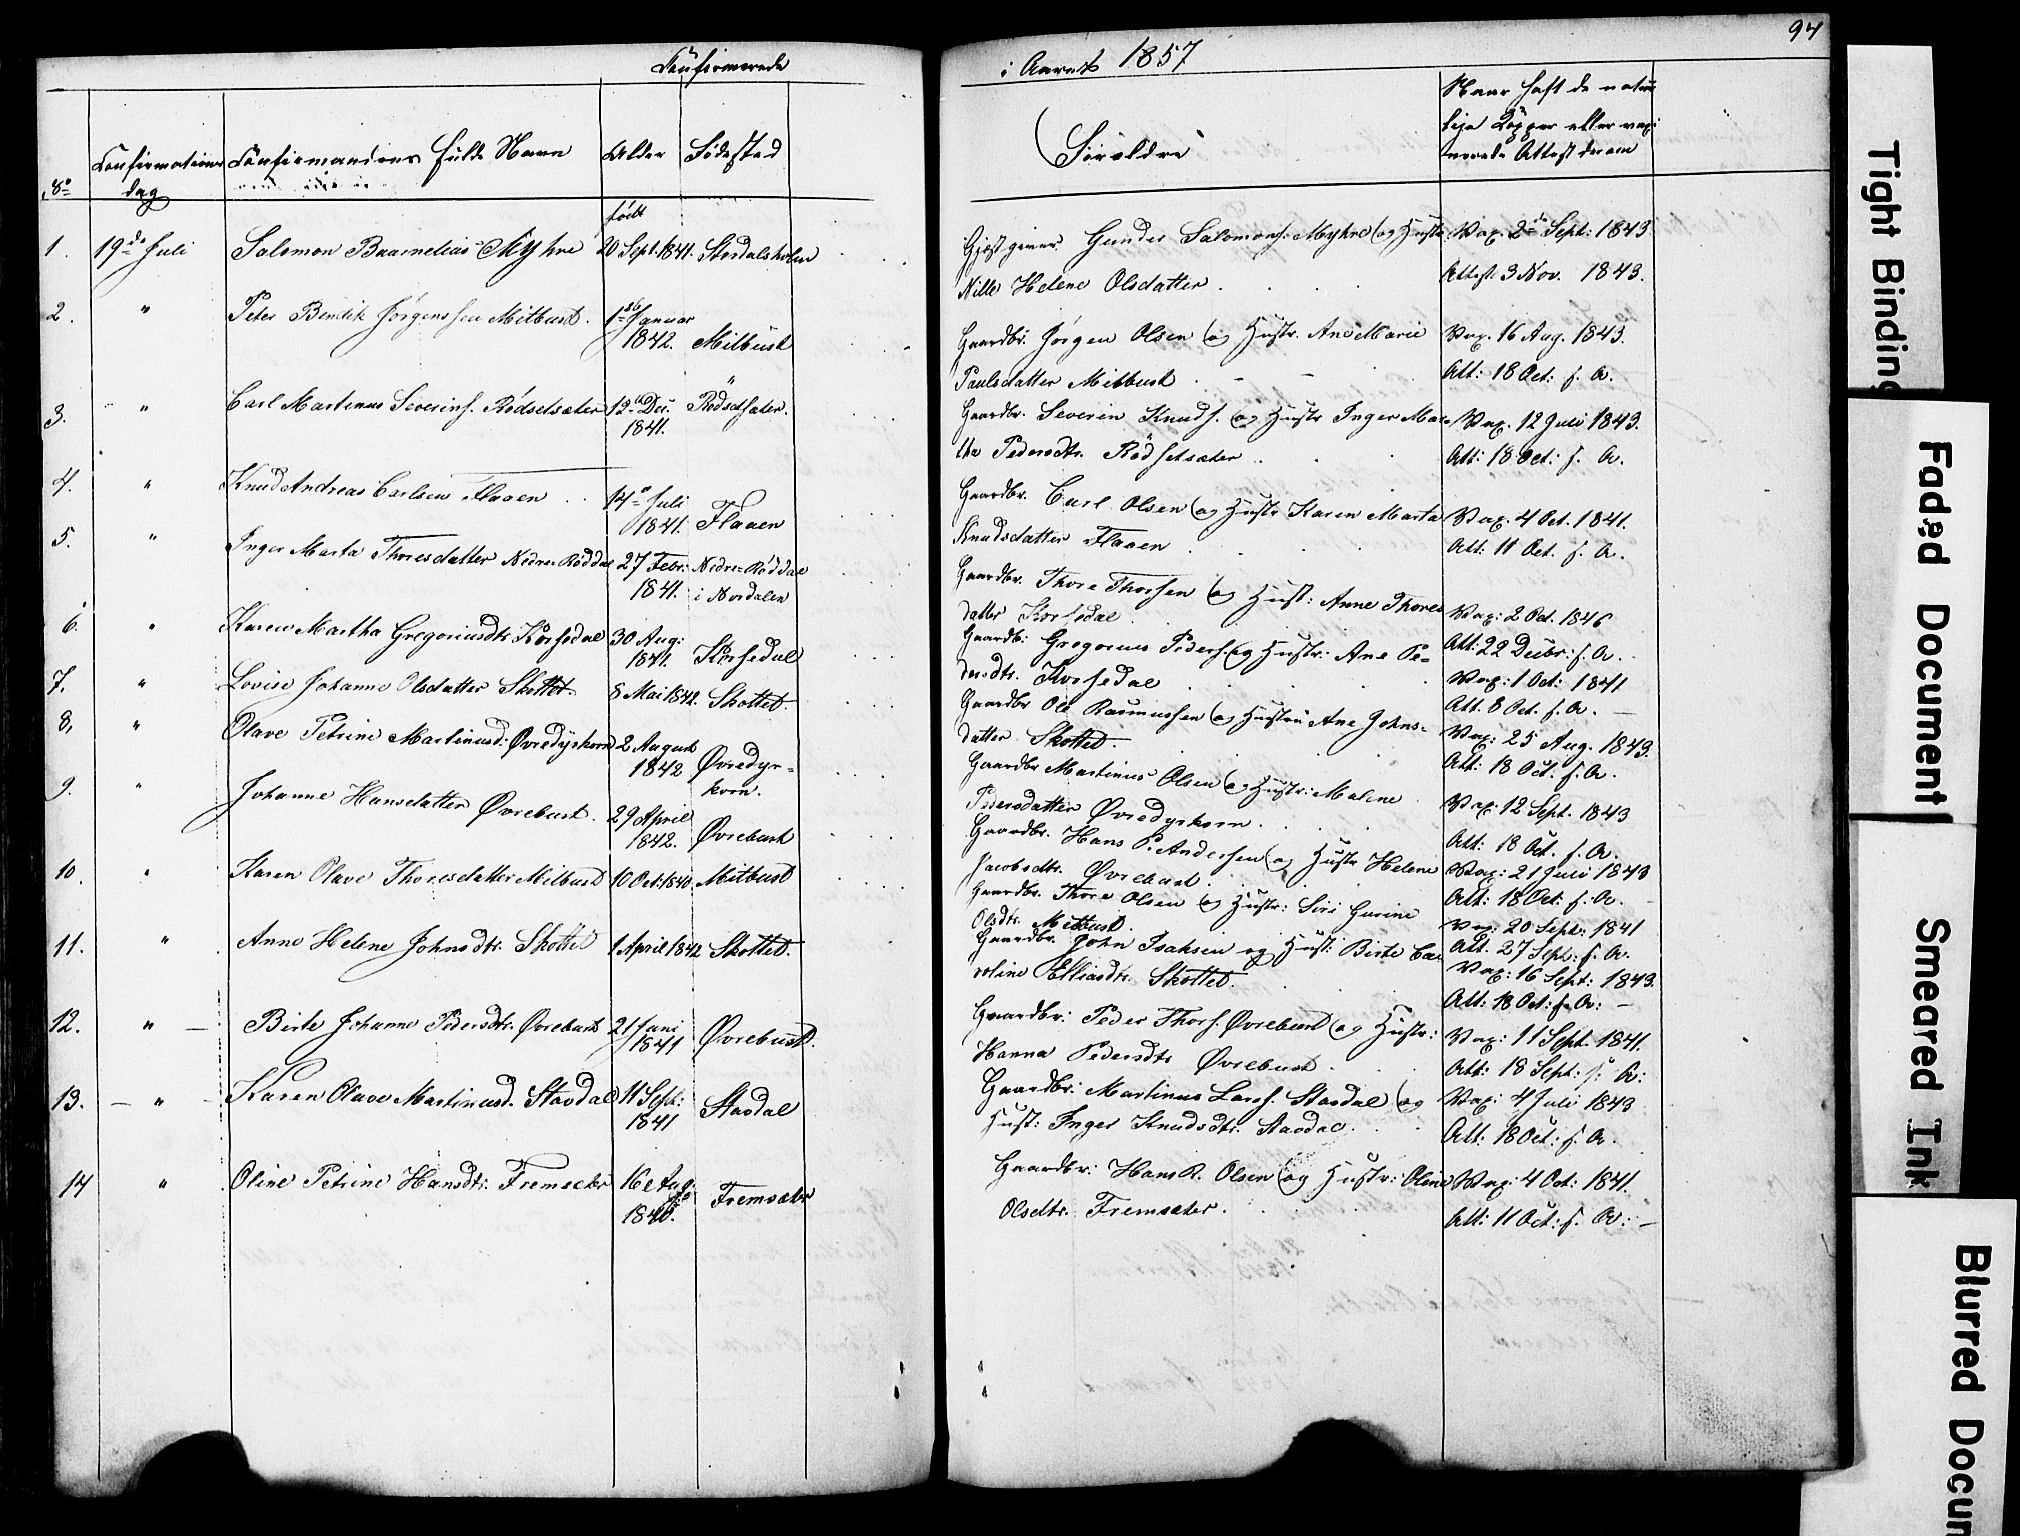 Confirmerede
Confirmations
dag
Confirmandens fulde Navn
Alder
Fødested
født
1. 19de Juli Salomon Baarnelias Myhre 20 Sept. 1841. Stordalsholm
2. " Peter Bendik Jørgenssen Mitbust. 1ste Januar
1842. Mitbust
3. " Carl Martinus Severins. Rødsetsæter 12te Dec. Rødsetsæter.
1841.
4. " Knud Andreas Carlsen Flaaen 14de Juli
1841. Flaaen
5. " Inger Marta Thoresdatter Nedre-Røddal 27 Febr: Nedre-Røddal
1841. i Nordalen
6. " Karen Martha Gregoriusdtr. Korsedal 30 Aug:
1841. Korsedal
7. " Lovise Johanne Olsdatter Skottet 8 Mai 1842. Skottet.
8, " Olave Petrine Martinusd: Øvredyrkorn 2 August
1842 Øvredyr-
korn.
9. " Johanne Hansdatter Øvrebust. 29 April
1842. Øvrebust
10. " Karen Olave Thoresdatter Mitbust 10 Oct: 1840. Mitbust
11. " Anne Helene Johnsdtr. Skottet 1 April 1842 Skottet.
12. " Birte Johanne Pedersdtr. Øvrebust 21 Juni
1841 Øvrebust.
13. " Karen Olave Martinusd. Stavdal 11 Sept:
1841 Stavdal
14 " Oline Petrine Hansdtr. Fremsæter 16 Aug.
1840. Fremsæter
94
i Aaret 1857
Forældre
Naar haft de natur
lige Kopper eller vaxi
nerede Attest derom
Gjæstgiver Gunder Salomons. Myhre og Hustr.
Nille Helene Olsdatter
Vax. 2de Sept: 1843
Attest: 3 Nov. 1843.
Gaardbr. Jørgen Olsen og Hustr. Ane Marie
Paulsdatter Mitbust
Vax. 16 Aug. 1843.
Att: 18 Oct: s. A.
Gaardbr. Severin Knuds. og Hustr Inger Mar-
the Pedersdtr. Rødsetsæter
Vax. 12 Juli 1843.
Att: 18 Oct: s. A.
Gaardbr. Carl Olsen og Hustr Karen Marta
Knudsdatter Flaaen
Vax. 4 Oct. 1841.
Att: 11 Oct. s. A.
Gaardbr. Thore Thorsen og Hust: Anne Thores
datter Korsedal
Vax: 2 Oct. 1846
Att: 22 Decbr: s. A.
Gaardb: Gregorius Peders. og Hustr: Ane Pe-
dersdtr. Korsedal
Vax: 1 Oct: 1841
Att. 8 Oct. s. A.
Gaardbr Ole Rasmussen og Hustru Ane Johns-
datter Skottet.
Vax: 25 Aug. 1843.
Att: 18 Oct. s. A.
Gaardbr Martinus Olsen og Hustr: Malene
Pedersdatter Øvredyrkorn.
Vax: 12 Sept. 1843
Att: 18 Oct. s. A.
Gaardbr. Hans P. Andersen og Hustr Helene
Jacobsdtr. Øvrebust.
Vax: 21 Juli 1843
Att: 18 Oct: s. A.
Gaardbr. Thore Olsen og Hustr: Siri Gurine
Olsdtr. Mitbust.
Vax: 20 Sept: 1841
Att. 27 Sept: s. A.
Gaardbr. John Isaksen og Hust: Birte Ca-
roline Elliasdtr. Skottet.
Vax: 16 Sept: 1843.
Att: 18 Oct: s. A:
Gaardbr: Peder Thors. Øvrebust og Hustr:
Hanna Pedersdtr Øvrebust
Vax: 11 Sept. 1841.
Att: 18 Sept: s: A:
Gaardbr: Martinus Lars. Stavdal og
Hust: Inger Knudsdtr. Stavdal.
Vax: 4 Juli 1843
Att: 18 Oct: s. A.
Gaardbr: Hans R. Olsen og Hustr: Oline
Olsdtr. Fremsæter.
Vax: 4 Oct: 1841.
Att: 11 Oct: s. A.
Tight Binding
Faded Document
Smeared Ink
Blurred Docum